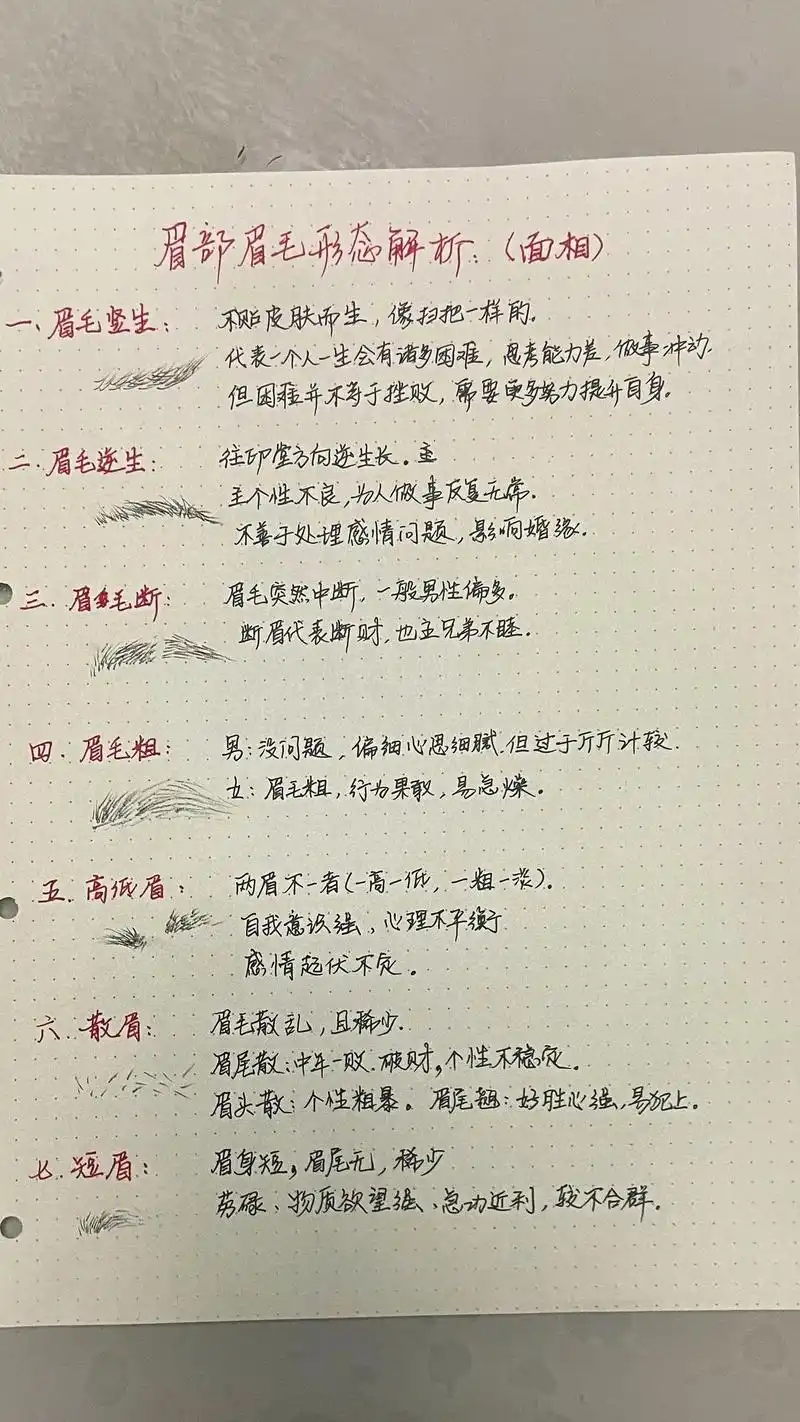 眉部眉毛形态解析:(面相)
一、眉毛竖生: 不贴皮肤而生,像扫把一样的。
代表一个人一生会有诸多困难,思考能力差,做事冲动.
但困难并不等于挫败,需要更多努力提升自身。
二.眉毛逆生: 往印堂方向逆生长。主
主个性不良,为人做事反复无常.
不善于处理感情问题,影响婚缘.
三.眉毛断: 眉毛突然中断,一般男性偏多。
断眉代表断财,也主兄弟不睦.
四.眉毛粗: 男:没问题,偏细心思细腻.但过于斤斤计较.
女:眉毛粗,行为果敢,易急燥。
五.高低眉: 两眉不一者(一高一低,一粗一淡).
自我意识强、心理不平衡
感情起伏不定。
六.散眉: 眉毛散乱,且稀少.
眉尾散:中年一败.破财,个性不稳定。
眉头散:个性粗暴。眉尾翘:好胜心强,易犯上。
七.短眉: 眉身短,眉尾无,稀少
劳碌、物质欲望强、急功近利,较不合群。